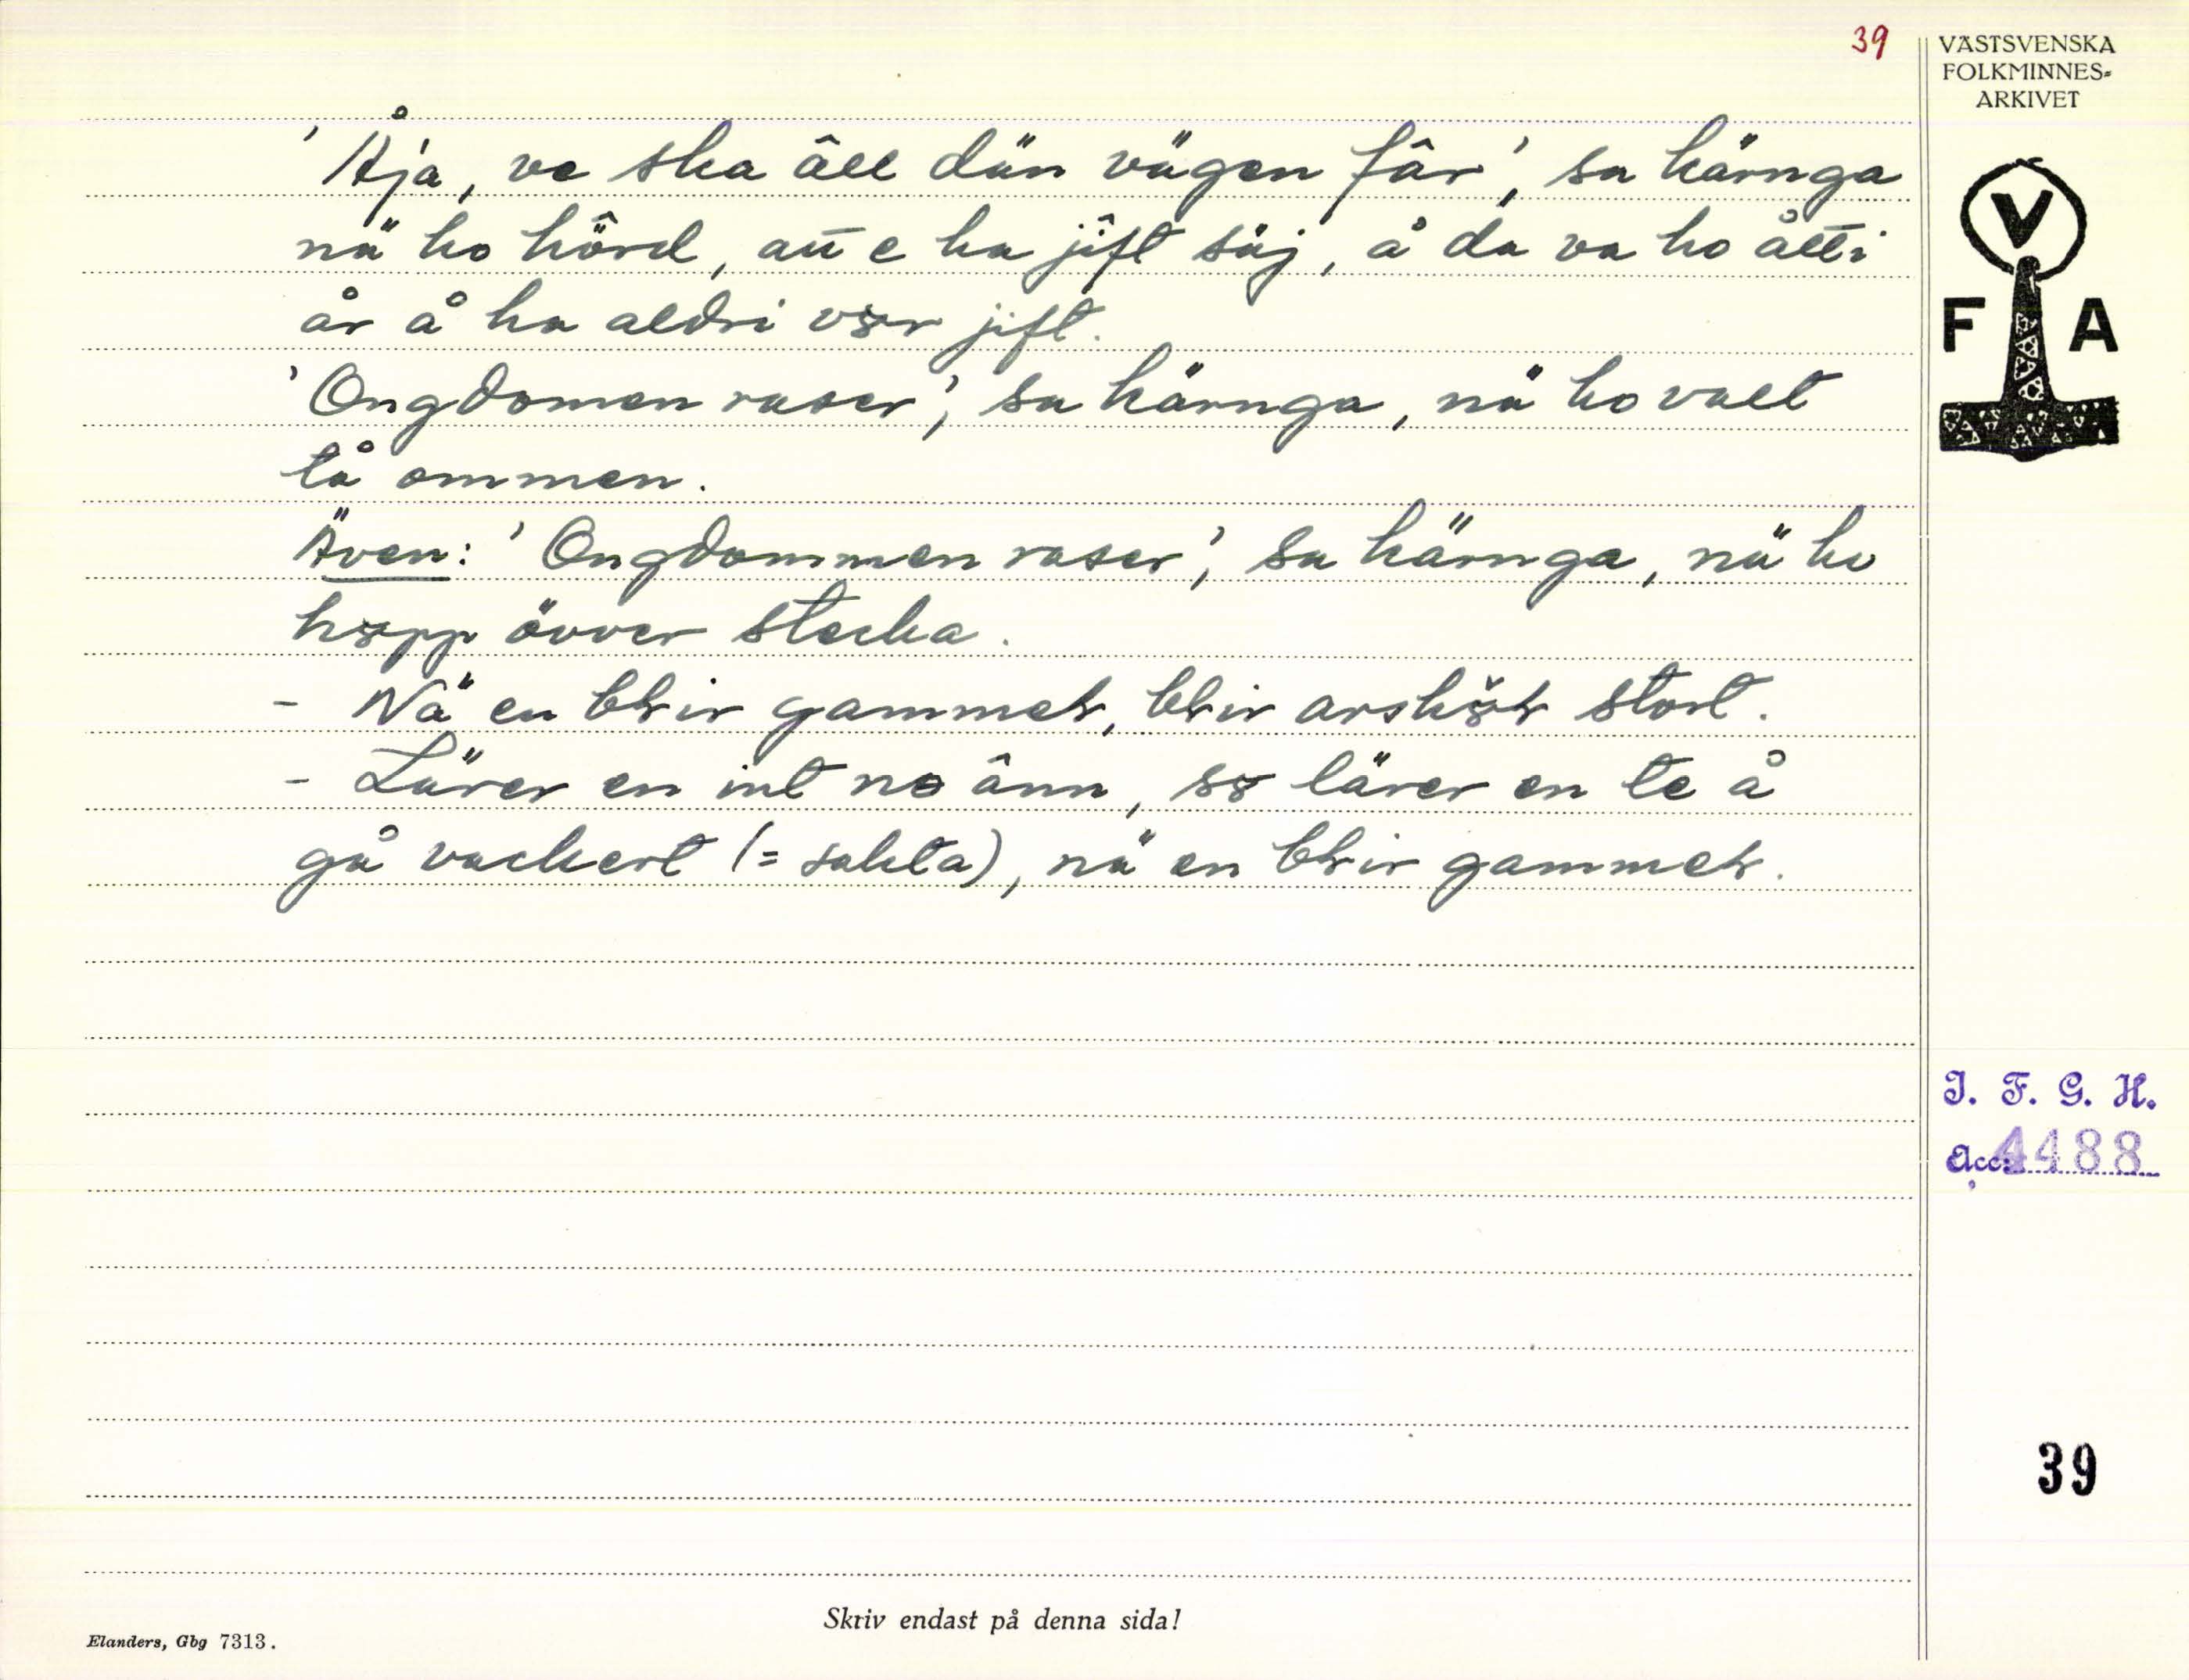 39
VÄSTSVENSKA
FOLKMINNES-
ARKIVET
'Åja, ve ska äll dän vägen får', sa kärnga
nä ho hörd, att e ha jift säj, å da va ho åtti
år å ha aldri vɤr jift.
'Ongdomen raser', sa kärnga, nä ho valt
tå ommen.
Även: 'Ongdommen raser', sa kärnga, nä ho
hɤpp övver stecka.
- Nä en błir gammeł, błir arshɤł stort.
- Lärer en int nɵ ânn, sɤ lärer en te å
gå vackert (= sakta), nä en błir gammeł.
V
F A
I. F. G. H.
Acc. 4488
39
Skriv endast på denna sida!
Elanders, Gbg 7313.